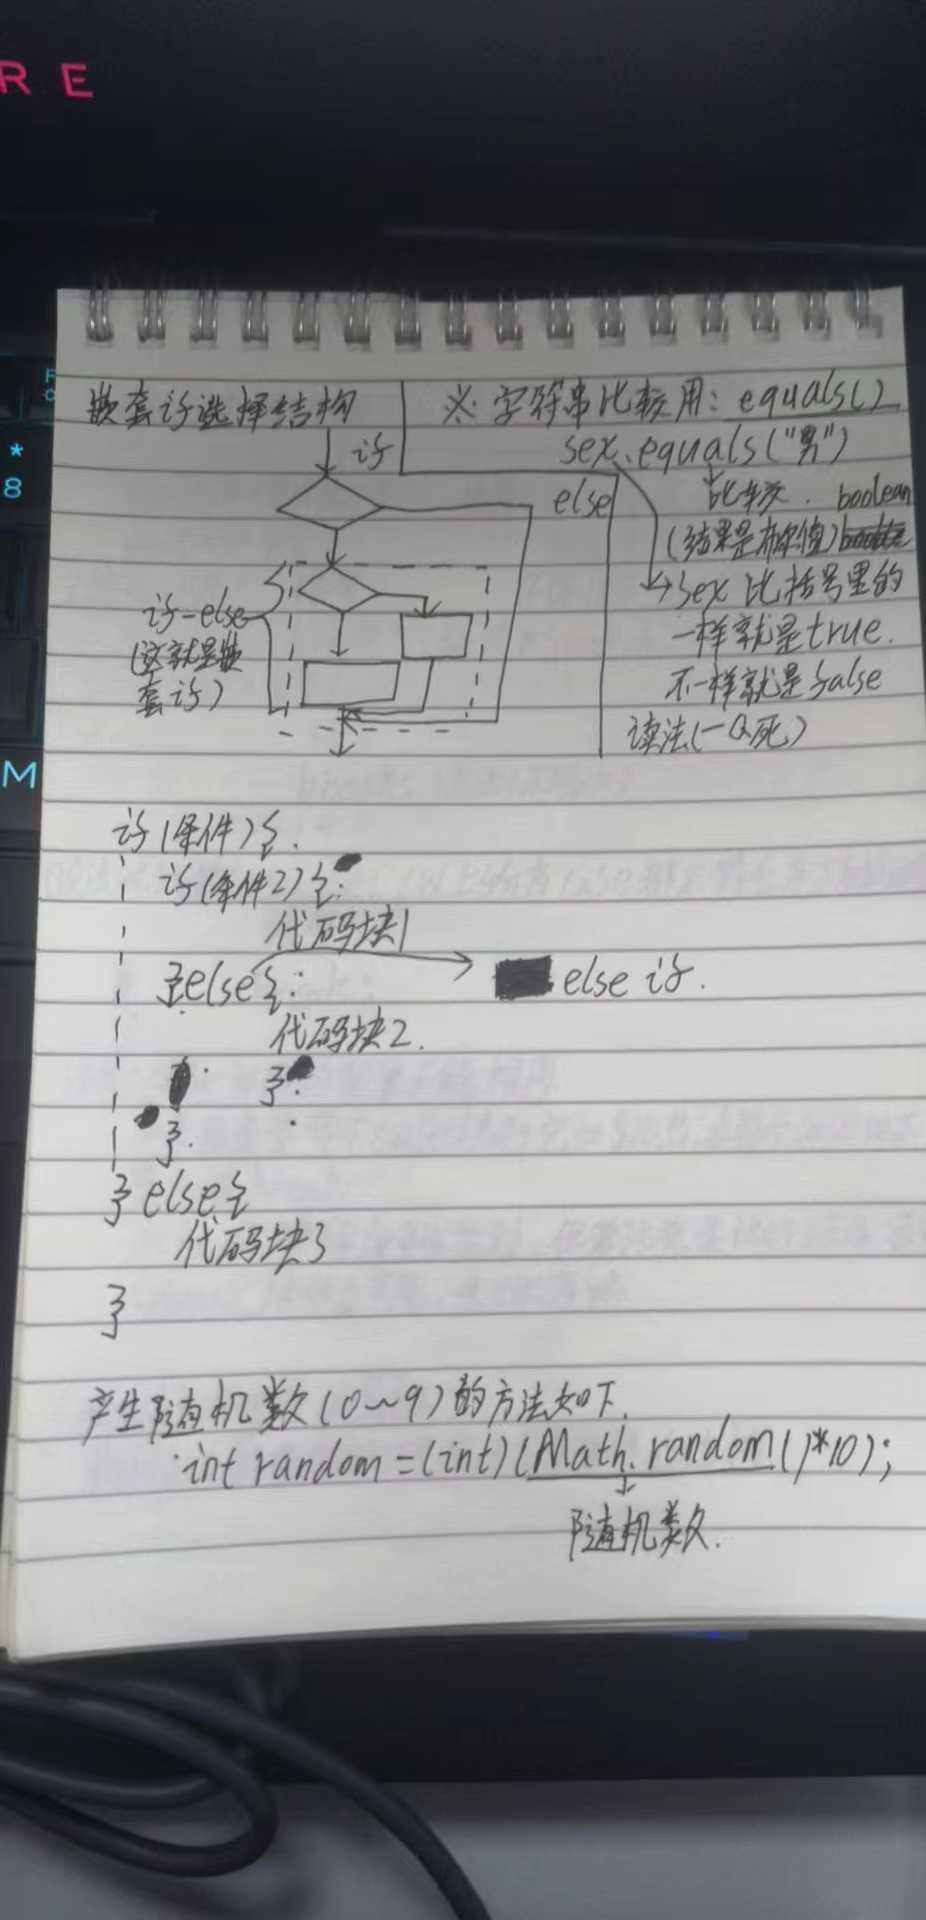 R E
*
8
M
嵌套if选择结构
if
else
if-else
(这就是嵌
套if)
※ 字符串比较用: equals()
sex.equals("男")
比较. boolean
(结果是布尔值)
sex 比括号里的
一样就是true.
不一样就是false
读法(一Q死)
if(条件){.
if(条件2){
代码块1
}else{
else if.
代码块2.
}
}.
}else{
代码块3
}
产生随机数(0~9)的方法如下.
int random=(int)(Math.random()*10);
随机数.